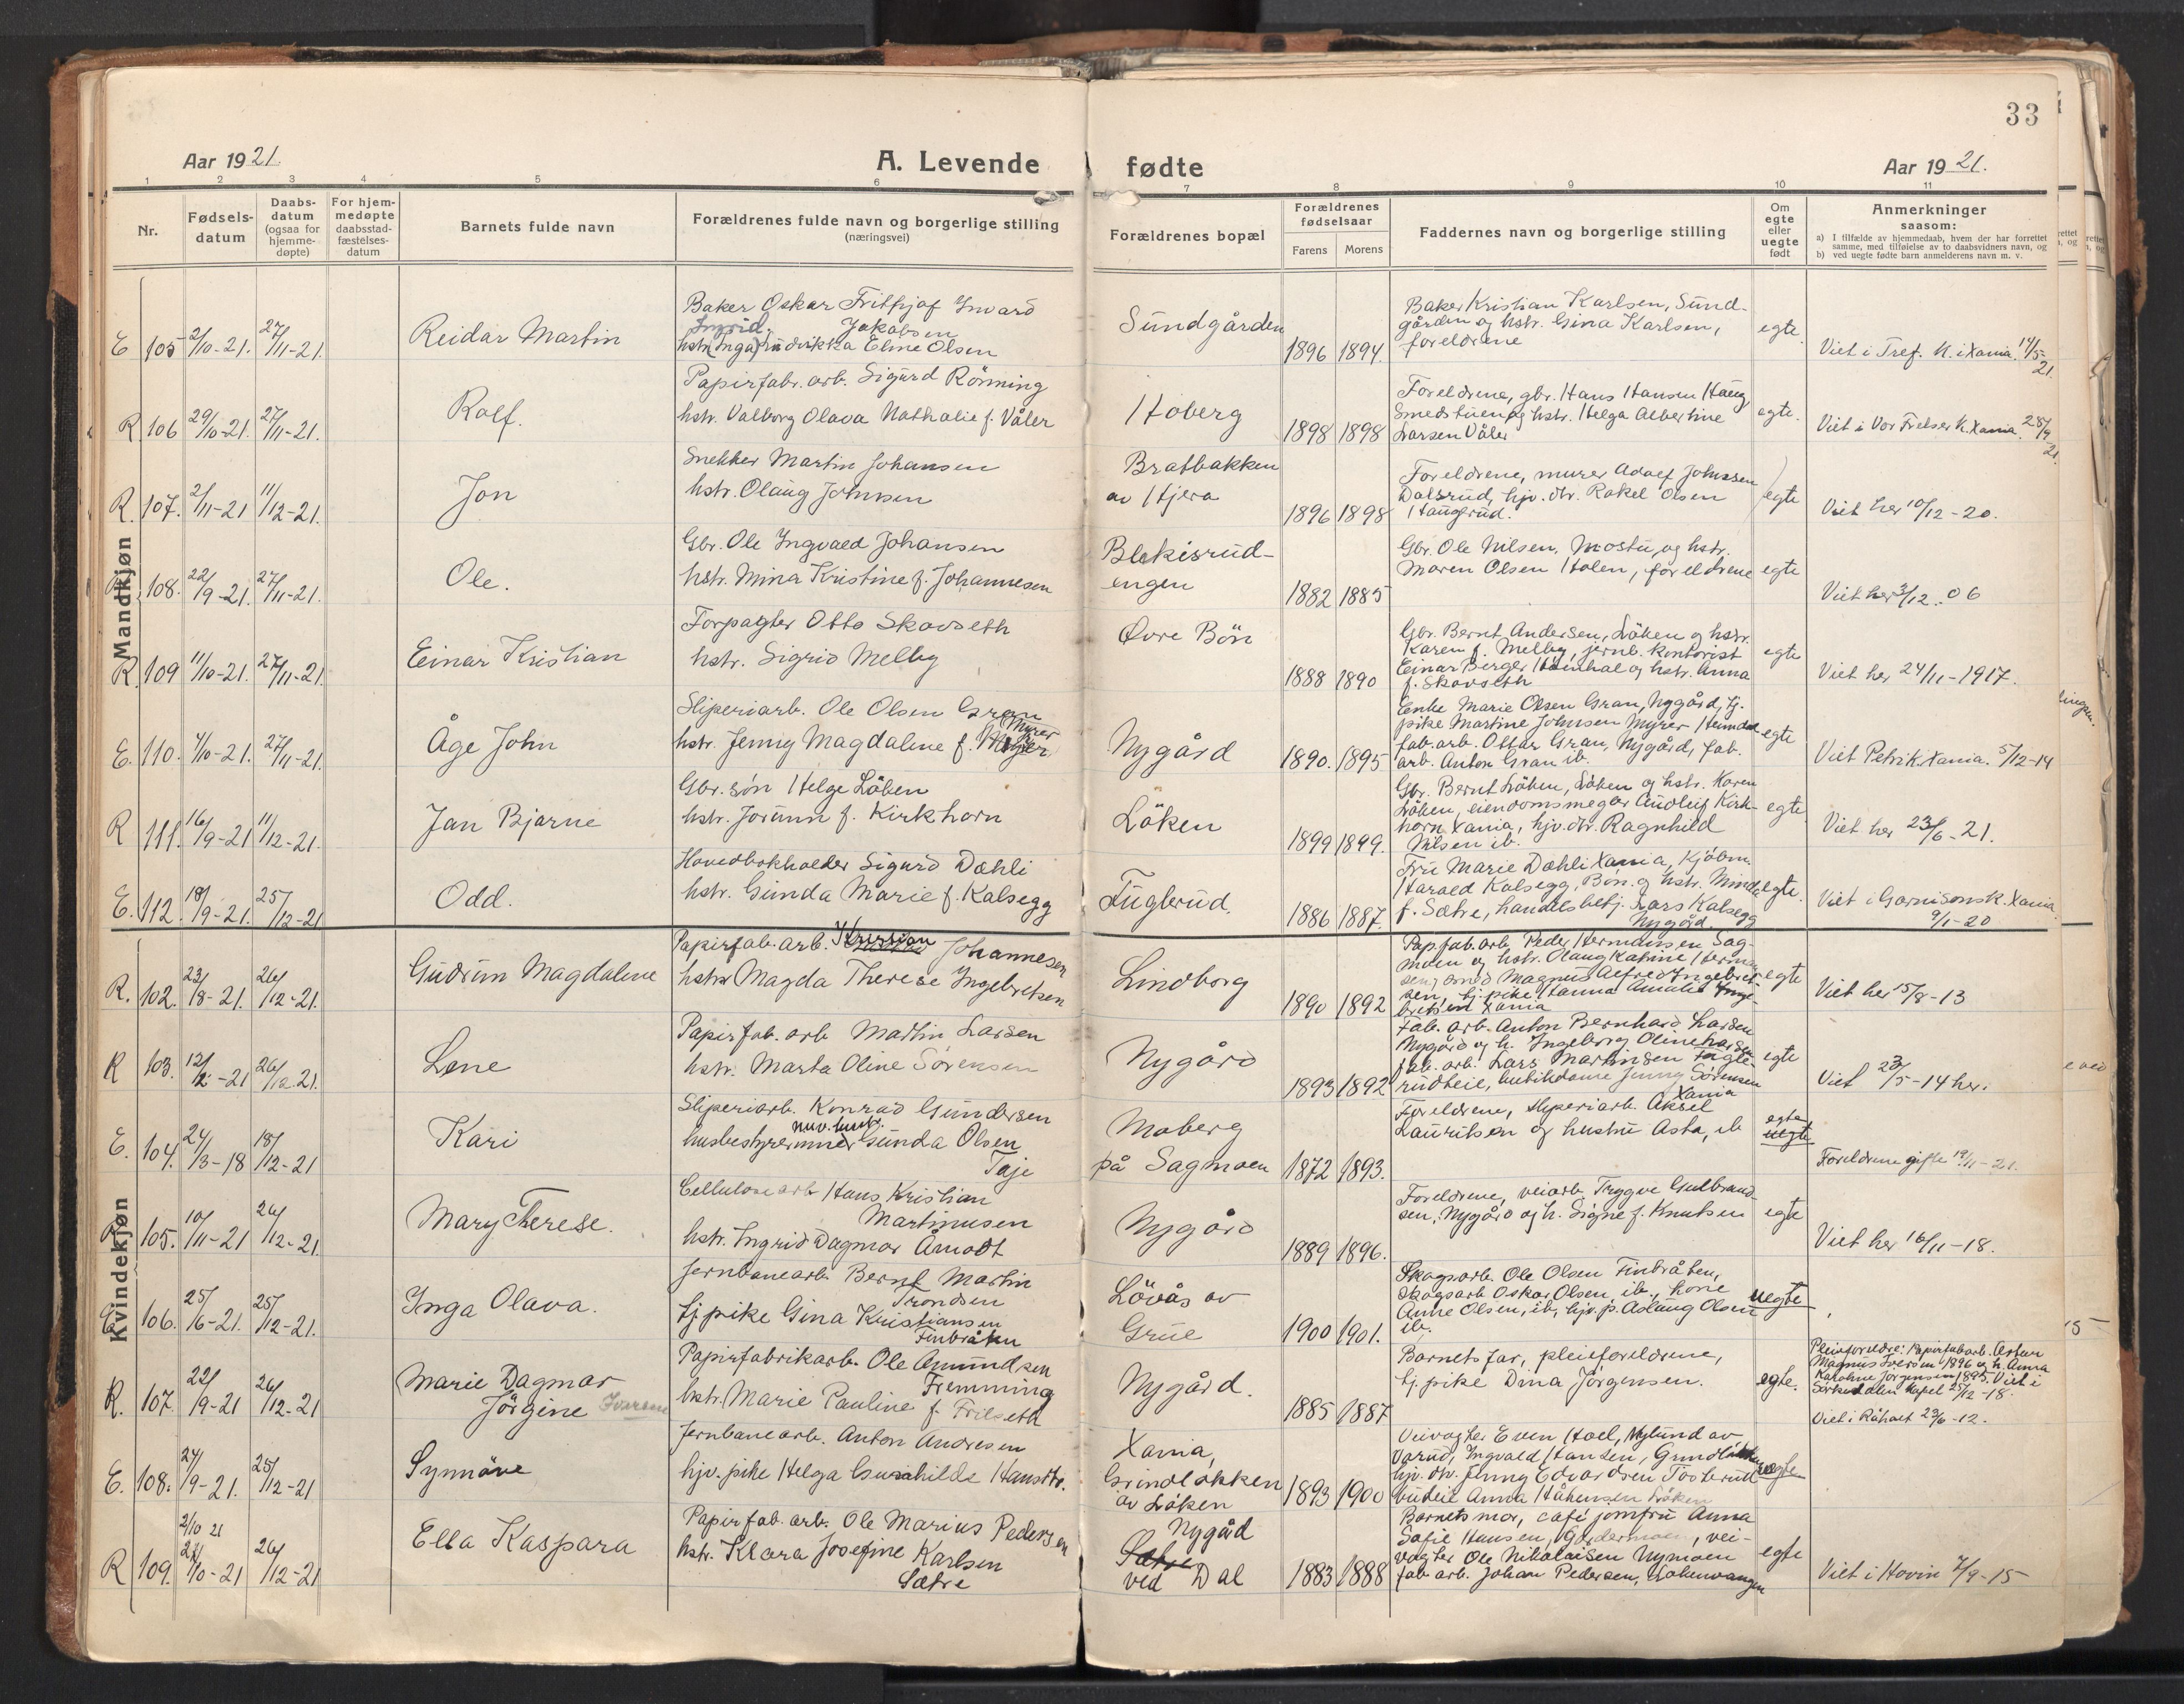 33
Aar 1921.
A. Levende fødte
Aar 1921.
1 2 3 4 5 6 7 8 9 10 11
Nr.
Fødsels-
datum
Daabs-
datum
(ogsaa for
hjemme-
døpte)
For hjem-
medøpte
daabsstad-
fæstelses-
datum
Barnets fulde navn
Forældrenes fulde navn og borgerlige stilling
(næringsvei)
Forældrenes bopæl
Forældrenes
fødselsaar
Farens Morens
Faddernes navn og borgerlige stilling
Om
egte
eller
uegte
født
Anmerkninger
saasom:
a) I tilfælde av hjemmedaab, hvem der har forrettet
samme, med tilføielse av to daabsvidners navn, og
b) ved uegte fødte barn anmelderens navn m. v.
Mandkjøn
E 105 2/10-21. 27/11-21.
Reidar Martin
Baker Oskar Frithjof
Ingrid. Jakobsen
hstr. (Inga) Eline Olsen
Sundgården
1896 1894.
Baker Kristian Karlsen, Sund-
gården og hstr. Gina Karlsen,
foreldrene
egte.
Viet i Tref. K. i Xania. 14/5-
21.
R 106 29/10-21. 27/11-21.
Rolf.
Papirfabr. arb. Sigurd Rönning
hstr. Valborg Olava Nathalie f. Våler
Hoberg
1898 1898
Foreldrene, gbr. Hans Hansen Haug,
Smedstuen og hstr. Helga Albertine
Larsen Våler
egte.
Viet i Vor Frelser K. Xania. 28/9
21.
R. 107. 2/11-21 11/12-21.
Jon
Snekker Martin Johansen
hstr. Olaug Johnsen
Bratbakken
av Hjera
1896 1898
Foreldrene, murer Adolf Johnssen
Dalsrud, hjv. dtr. Rakel Olsen
Haugsrud.
egte
Viet her 10/12-20.
R 108. 22/9-21. 27/11-21.
Ole.
Gbr. Ole Ingvald Johansen
hstr. Mina Kristine f. Johannesen
Blekisrud-
engen
1882 1885
Gbr. Ole Nilsen, Mostu, og hstr.
Maren Olsen Holen, foreldrene
egte
Viet her 3/12.06
R. 109 11/10-21. 27/11-21.
Einar Kristian
Forpagter Otto Skovseth
hstr. Sigrid Melby
Øvre Bön
1888 1890
Gbr. Bernt Andersen, Löken og hstr.
Karen f. Melby, jernb. kontorist
Einar Berger og hstr. Anna
f. Skovseth
egte
Viet her 24/11-1917.
E. 110. 4/10-21. 27/11-21.
Åge John
Sliperiarb. Ole Olsen Gran
Myrer
hstr. Jenny Magdalene f.
Nygård
1890. 1895
Enke Marie Olsen Gran, Nygård, tj.
pike Martine Johnsen Myrer
fab. arb. Ottar Gran, Nygård, fab.
arb. Anton Gran ib.
egte
Viet Petri K. Xania. 5/12-14
R 111. 16/9-21 11/12-21.
Jan Bjarne
Gbr. sön Helge Löken
hstr. Jorunn f. Kirkhorn
Löken
1899 1899.
Gbr. Bernt Löken, Löken og hstr. Karen
Löken, eiendomsmegler Kirk-
horn Xania, hjv. dtr. Ragnhild
Nilsen ib.
egte
Viet her 23/6-21.
E. 112. 18/9-21. 25/12-21
Odd.
Hovedbokholder Sigurd Dæhli
hstr. Gunda Marie f. Kalsegg
Fuglerud.
1886 1887.
Fru Marie Dæhli Xania, Kjöbm.
Harald Kalsegg, Bön. og hstr. Minda
f. Sætre, handelsbetj. Lars Kalsegg
Nygård.
egte.
Viet i Garnisonsk. Xania.
9/1-20
Kvindekjøn
R. 102. 23/8-21. 26/12-21.
Gudrun Magdalene
Papirfab. arb. Johannesen
hstr Magda Therese Ingebretsen
Lindborg
1890 1892
Pap. fab. arb. Peder Hermansen Sag-
moen og hstr. Olaug Katrine Herman
sen, smed Magnus Alfred Ingebret-
sen, tj. pike Hanna Amalie Inge-
bretsen Xania
egte
Viet her 15/8-13
R 103. 12/12-21 26/12.21.
Lene
Papirfab. arb Martin Larsen
hstr. Marta Oline Sörensen
Nygård
1893 1892
Fab. arb. Anton Bernhard Larsen
Nygård og h. Ingeborg Oline Larsen
fab. arb. Lars Martinsen Fugle-
rudteie, butikdame Jenny Sörensen
Xania
egte
Viet 23/5-14 her.
E. 104. 24/3-18 18/12-21
Kari
Sliperiarb. Konrad Gundersen
nuv. hustr.
husbestyrerinne Gunda Olsen
Taje
Moberg
på Sagmoen
1872 1893.
Foreldrene, sliperiarb. Aksel
Lauritsen og hustru Asta, ib
egte
uegte
Foreldrene gifte 19/11-21.
R 105. 10/11-21 26/12-21.
Mary Therese.
Cellulosearb Hans Kristian
Martinusen
hstr. Ingrid Dagmar Åmodt
Nygård
1889 1896.
Foreldrene, veiarb. Trygve Gulbrand-
sen, Nygård og h. Signe f. Knutsen
egte
Viet her 16/11-18.
E 106. 25/6-21. 25/12-21.
Inga Olava.
Jernbanearb. Bernt Martin
Trondsen
tj. pike Gina Kristiansen
Finbråten
Lövås av
Grue
1900 1901.
Skogsarb. Ole Olsen Finbråten,
Skogsarb Oskar Olsen, ib., kone
Anne Olsen, ib, hjv. p. Aslaug Olsen
ib.
uegte
R. 107. 22/9-21 26/12-21
Marie Dagmar
Jörgine Iversen
Papirfabrikarb. Ole Amundsen
Fremming
hstr. Marie Pauline f. Frilseth
Nygård.
1885 1887
Barnets far, pleieforeldrene,
tj. pike Dina Jörgensen.
egte.
Pleieforeldre: Papirfabarb. Artur
Magnus Iversen 1896 og h. Anna
Karoline Jörgensen 1895. Viet i
Sörkedalen kapel 25/12-18.
Viet i Råholt 23/6-12.
E. 108. 24/9-21. 25/12-21
Synnöve
Jernbanearb. Anton Andresen
hjv. pike Helga Hanstto.
Xania,
Grindløkken
av Löken
1893 1900
Veivogter Even Hoel, Nylund av
Varud, Ingvald Hansen,
hjv. dtr. Jenny Edvardsen
budeie Anna Håkensen Löken
uegte
R 109. 2/10 21
26/12-21
Ella Kaspara
Papirfab. arb. Ole Marius Pedersen
hstr. Klara Josefine Karlsen
Sætre
Nygåd
Sætre
ved Dal
1883 1888
Barnets mor, caféjomfru Anna
Sofie Hansen, Gardermoen, vei-
vogter Ole Nikolaisen Nymoen
fab arb. Johan Pedersen,
egte
Viet i Hovin 7/9-15